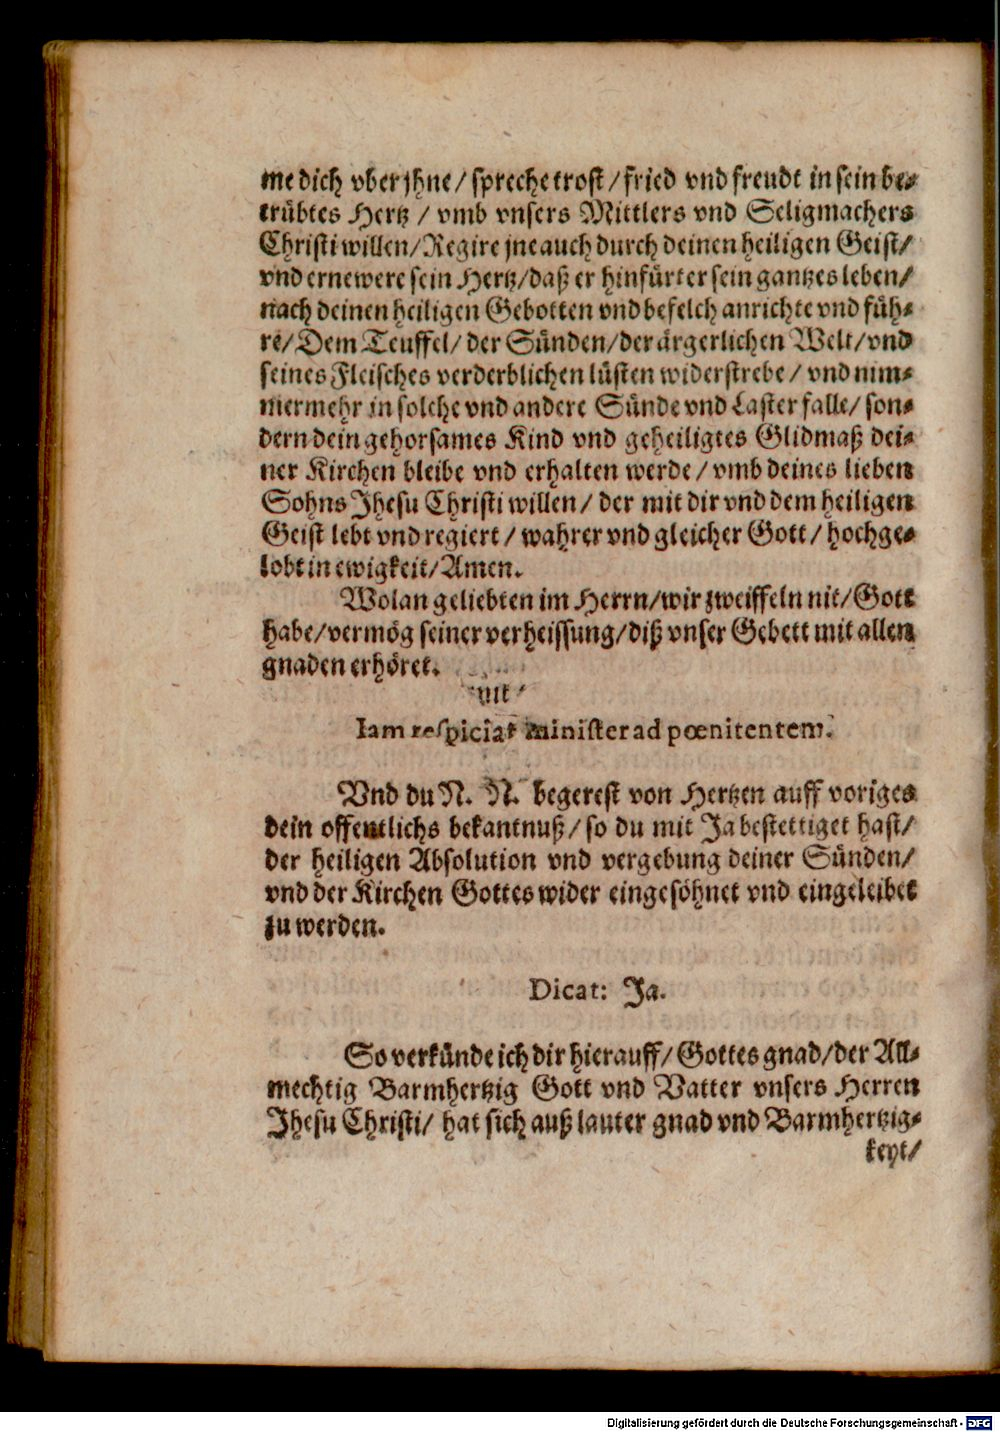 me dich vber jhne / spreche trost / fried vnd freudt in sein be⸗
trübtes Hertz / vmb vnsers Mittlers vnd Seligmachers
Christi willen / Regire jne auch durch deinen heiligen Geist /
vnd ernewere sein Hertz / daß er hinfürter sein gantzes leben /
nach deinen heiligen Gebotten vnd befelch anrichte vnd füh⸗
re / Dem Teuffel / der Sünden / der ärgerlichen Welt / vnd
seines Fleisches verderblichen lüsten widerstrebe / vnd nim⸗
mermehr in solche vnd andere Sünde vnd Laster falle / son⸗
dern dein gehorsames Kind vnd geheiligtes Glidmaß dei⸗
ner Kirchen bleibe vnd erhalten werde / vmb deines lieben
Sohns Jhesu Christi willen / der mit dir vnd dem heiligen
Geist lebt vnd regiert / wahrer vnd gleicher Gott / hochge⸗
lobt in ewigkeit / Amen.
Wolan geliebten im Herrn / wir zweiffeln nit / Gott
habe / vermög seiner verheissung / diß vnser Gebett mit allen
gnaden erhöret.
Iam respiciat minister ad pœnitentem.
Vnd du N. N. begerest von Hertzen auff voriges
dein offentlichs bekantnuß / so du mit Ja bestettiget hast /
der heiligen Absolution vnd vergebung deiner Sünden /
vnd der Kirchen Gottes wider eingesöhnet vnd eingeleibet
zu werden.
Dicat: Ja.
So verkünde ich dir hierauff / Gottes gnad / der All⸗
mechtig Barmhertzig Gott vnd Vatter vnsers Herren
Jhesu Christi / hat sich auß lauter gnad vnd Barmhertzig⸗
keyt /
Digitalisierung gefördert durch die Deutsche Forschungsgemeinschaft - DFG